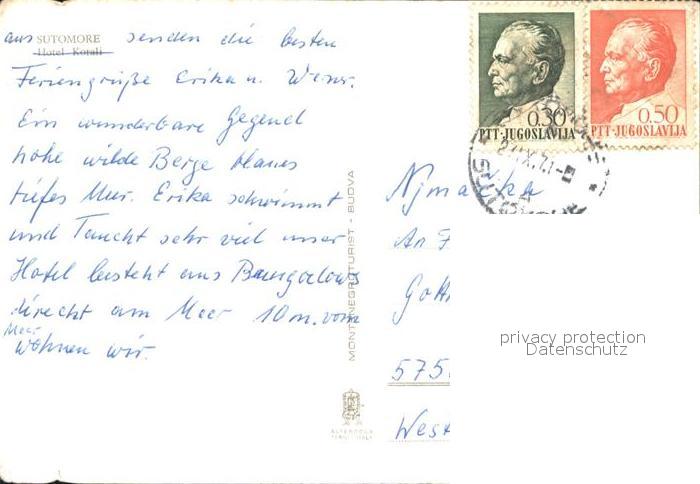 aus SUTOMORE senden die besten
Hotel Korali
Feriengrüße Erika u. Wenr.
Ein wunderbare Gegend
hohe wilde Berge blaues
tiefes Mur. Erika schwimmt
und Taucht sehr viel unser
Hotel besteht aus Bungalows
direcht am Meer 10 m. vom
Meer
wohnen wir.
MONTENEGROTURIST - BUDVA
0.30
PTT-JUGOSLAVIJA
0.50
PTT-JUGOSLAVIJA
An
575
West
privacy protection
Datenschutz